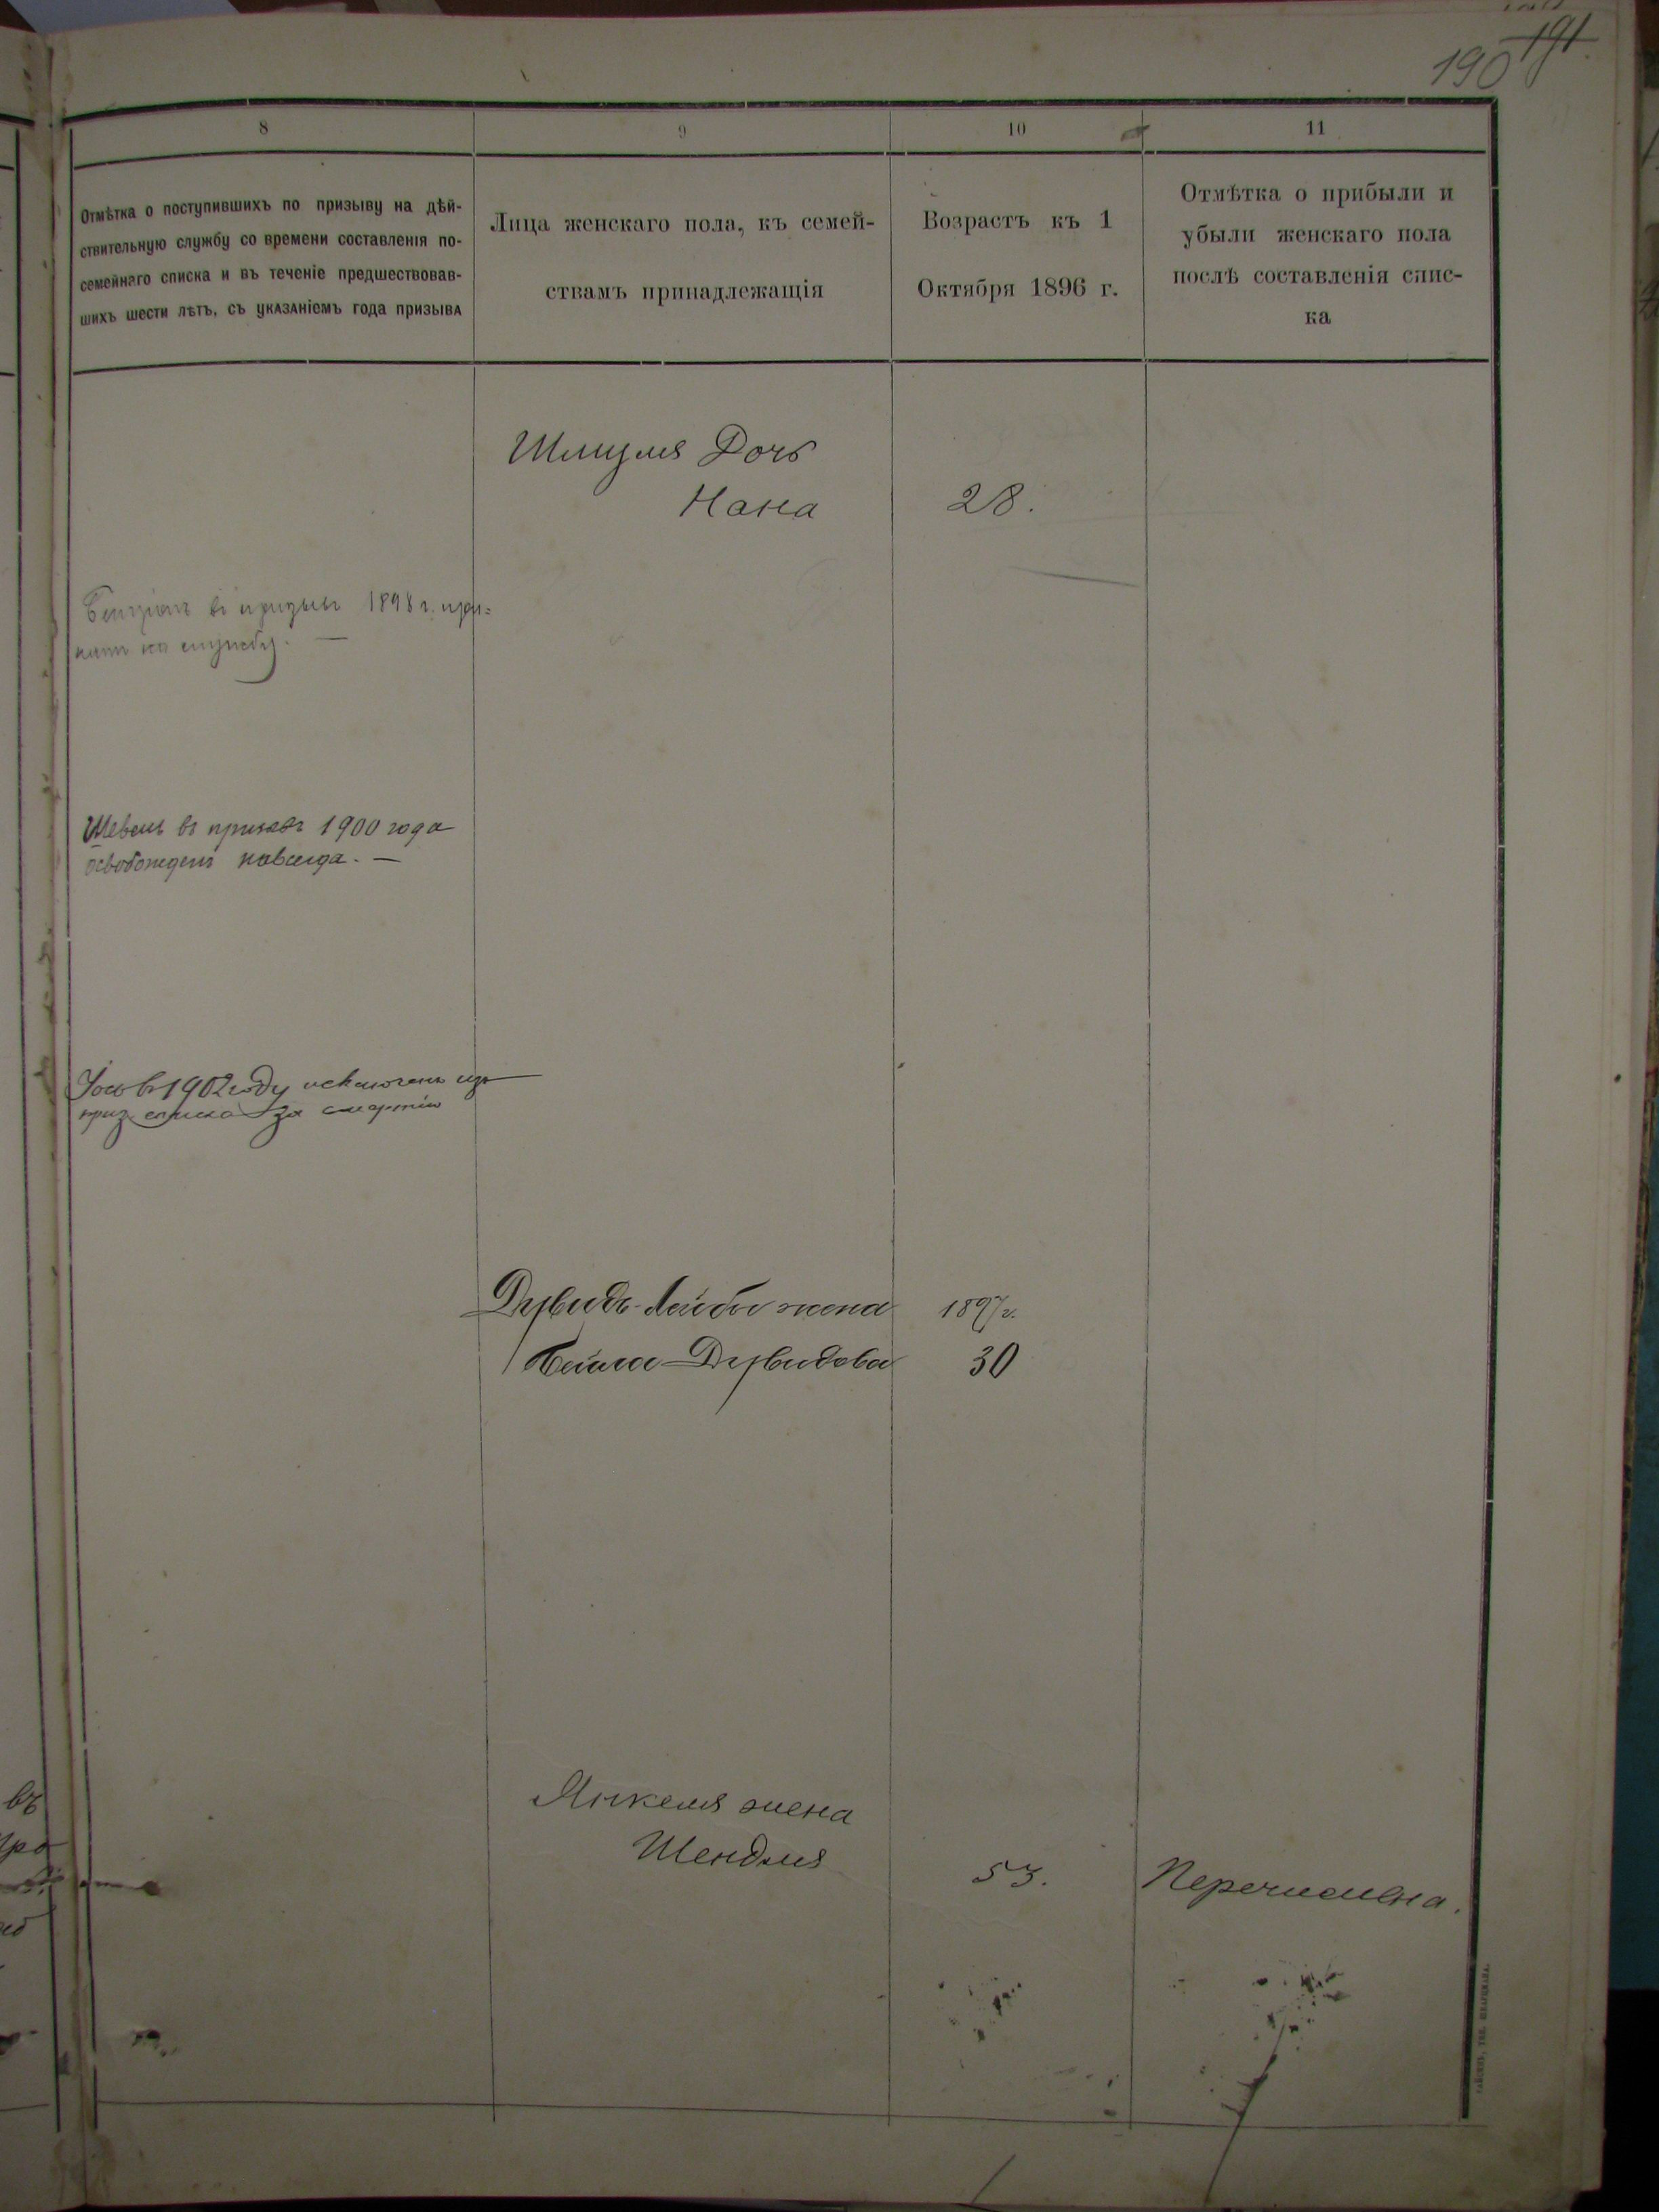 190 191.
8
9
10
11
Отмѣтка о поступившихъ по призыву на дѣй-
ствительную службу со времени составленія по-
семейнаго списка и въ теченіе предшествовав-
шихъ шести лѣтъ, съ указаніемъ года призыва
Лица женскаго пола, къ семей-
ствамъ принадлежащія
Возрастъ къ 1
Октября 1896 г.
Отмѣтка о прибыли и
убыли женскаго пола
послѣ составленія спис-
ка
Дочь
Хана 28.
Бенціонъ въ призывъ 1898 г. при-
нятъ на службу. —
въ призывъ 1900 года
освобожденъ навсегда. —
Іось въ 1902 году исключенъ изъ
приз. списка за смертію
Дувидъ-Лейбы жена 1897 г.
Бейла Дувидова 30
Янкеля жена
Шендля 53. Перечислена.
въ